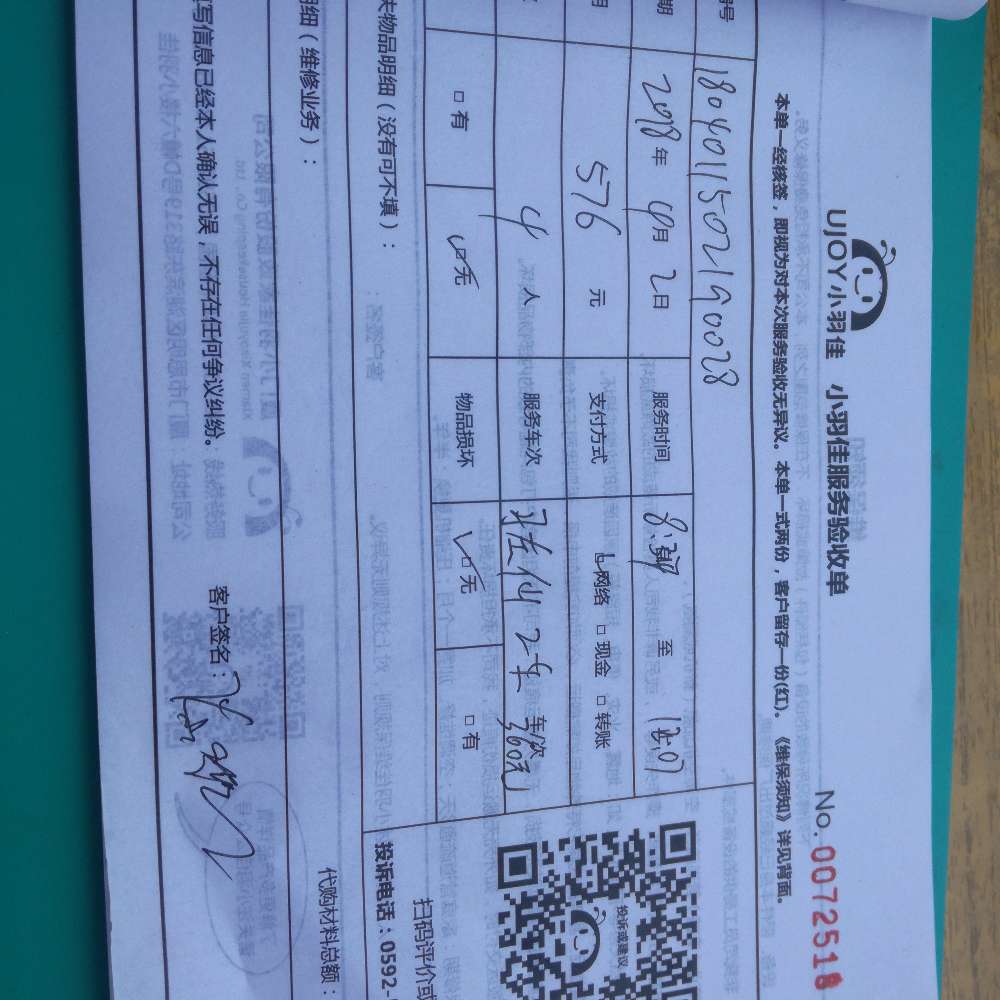 UJOY小羽佳 小羽佳服务验收单 No.0072518
本单一经核签，即视为对本次服务验收无异议。本单一式两份，客户留存一份(红)。《维保须知》详见背面。
号 18040115021G0028
期 2018年4月2日 服务时间 至 12:07
576元 支付方式 网络 现金 转账
4人 服务车次 2车 车次 360元
有 无 物品损坏 无 有
失物品明细（没有可不填）：
投诉电话：0592-
扫码评价或
投诉或建议
明细（维修业务）：
代购材料总额：
写信息已经本人确认无误，不存在任何争议纠纷。 客户签名：